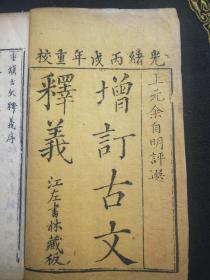 光緒丙戌年重校
上元余自明評選
增訂古文
釋義
江左書林藏板
重鐫古文釋義序